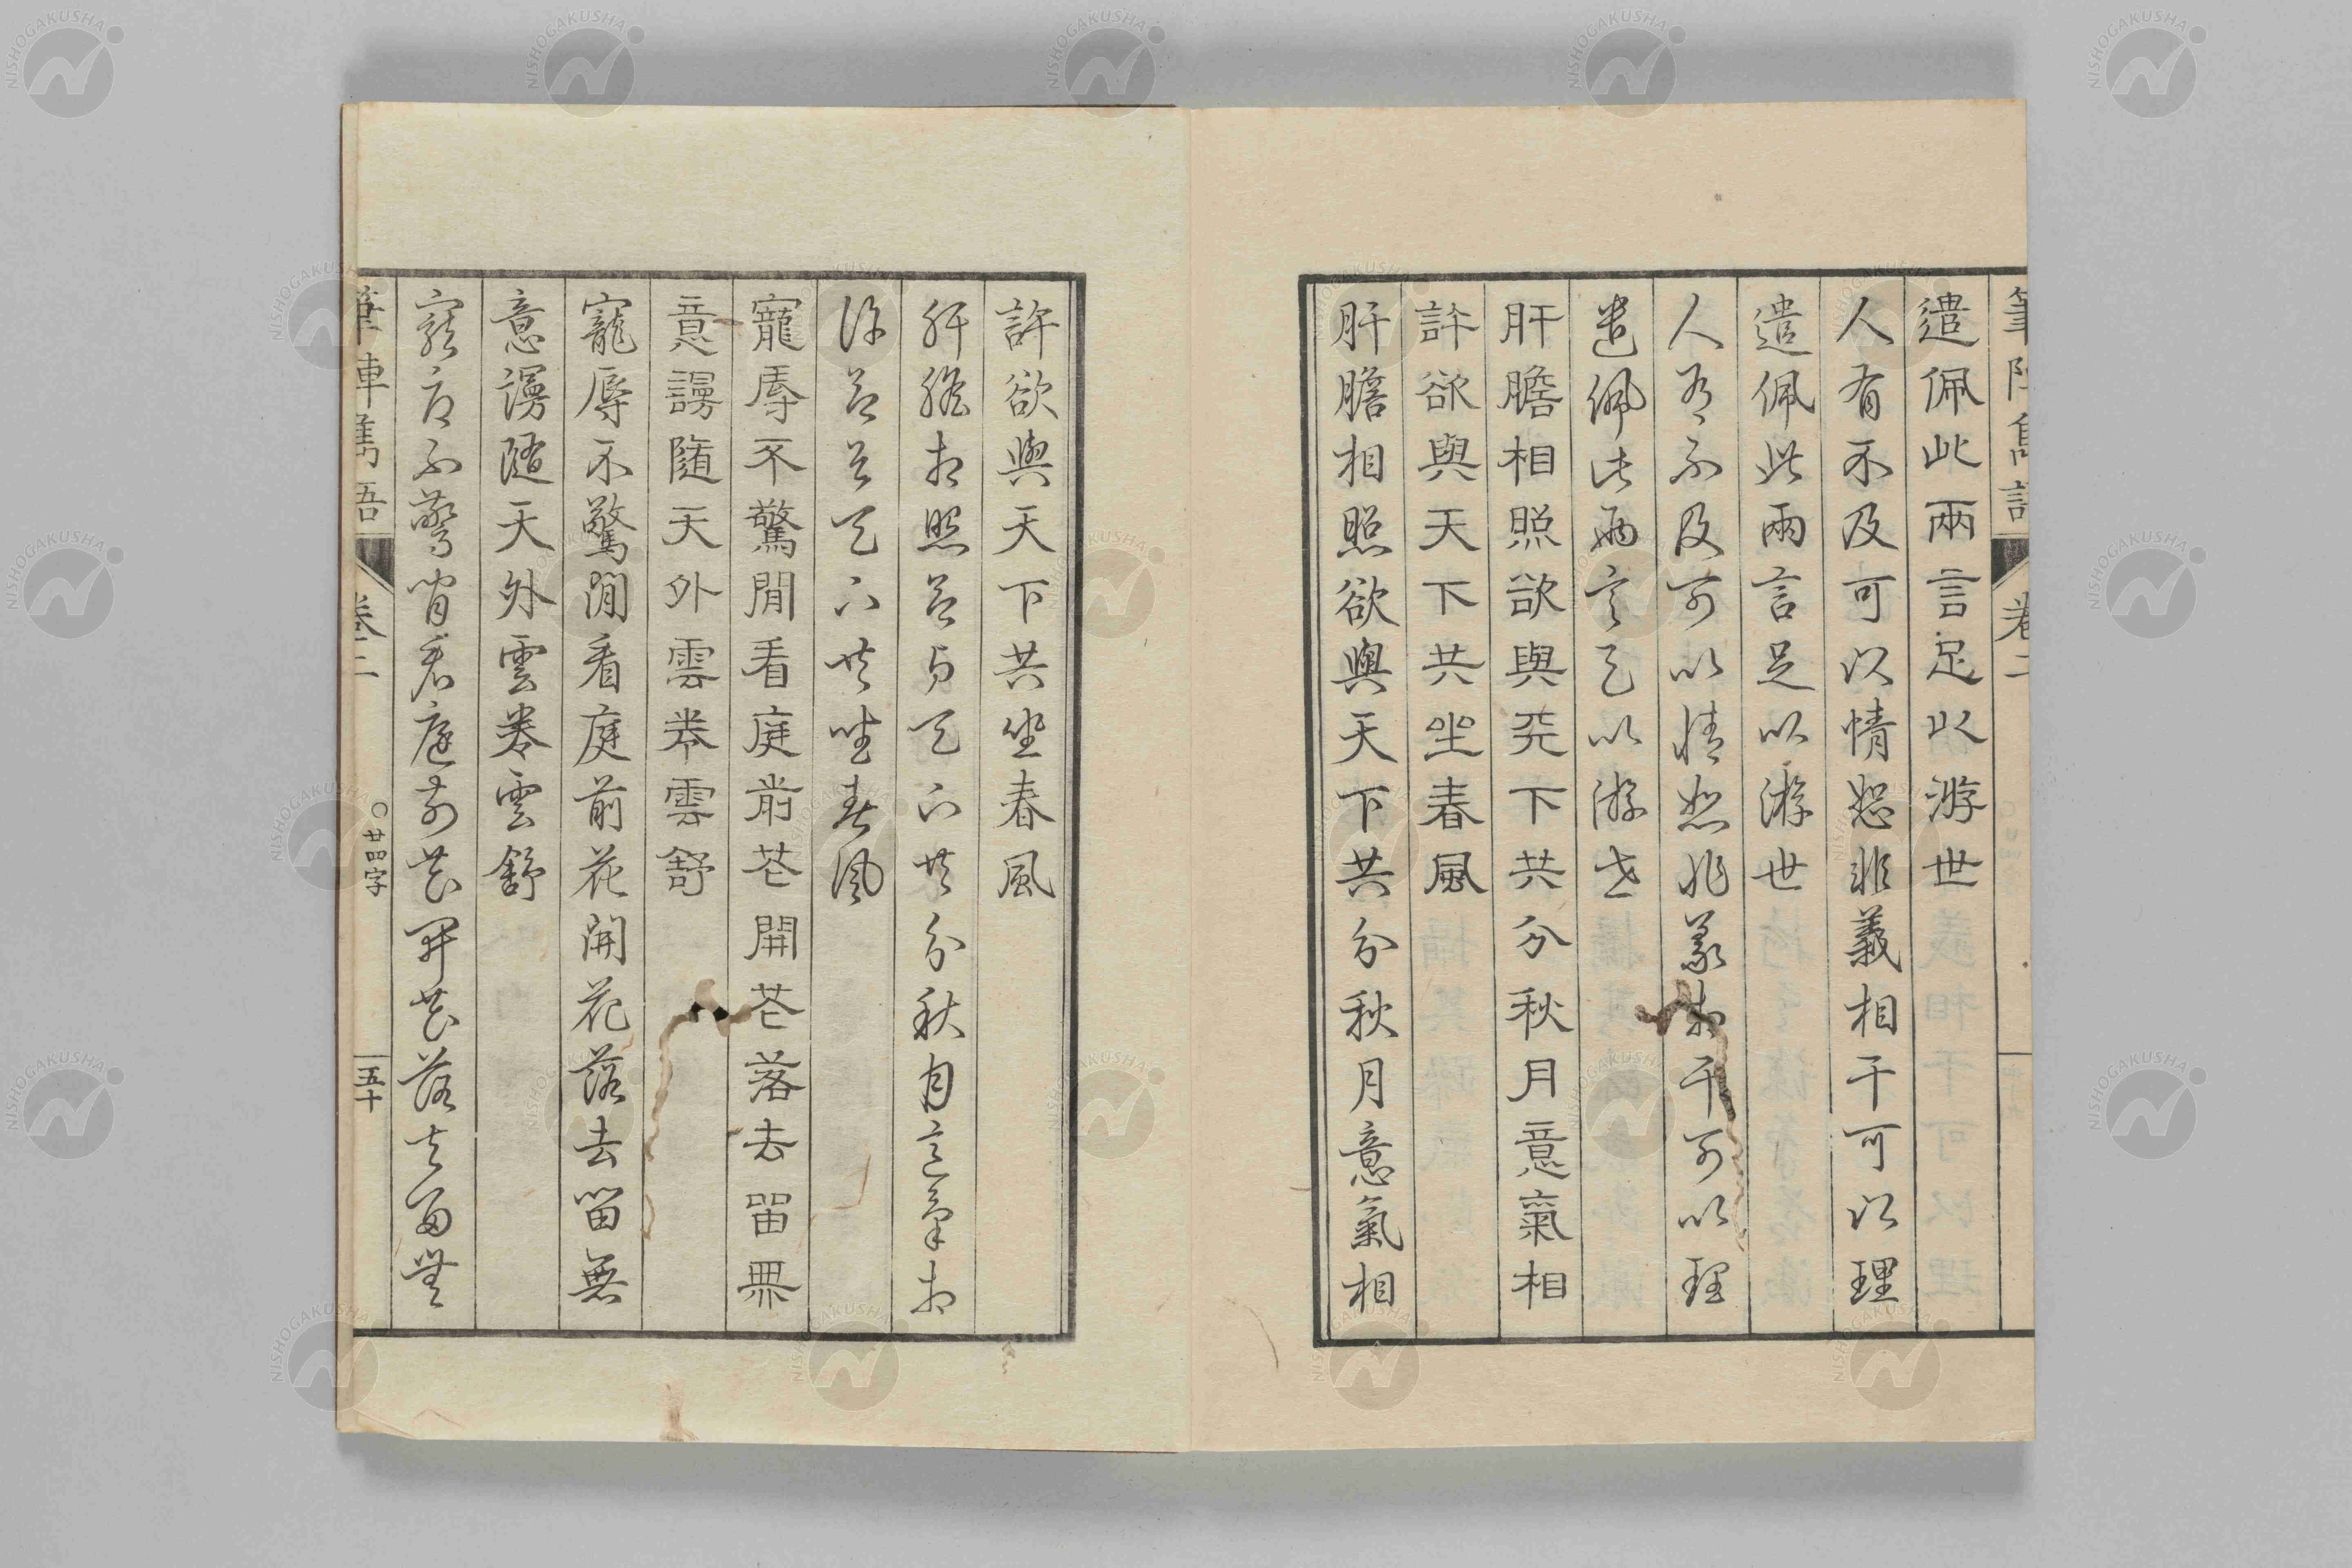 筆陣雋語 卷二
遣佩此兩言足以游世
人有不及可以情恕非義相干可以理
遣佩此兩言足以游世
人有不及可以情恕非義相干可以理
遣佩此兩言足以游世
肝膽相照欲與天下共分秋月意氣相
許欲與天下共坐春風
肝膽相照欲與天下共分秋月意氣相
許欲與天下共坐春風
肝膽相照欲與天下共分秋月意氣相
許欲與天下共坐春風
寵辱不驚閒看庭前花開花落去留無
意謾隨天外雲卷雲舒
寵辱不驚閒看庭前花開花落去留無
意謾隨天外雲卷雲舒
寵辱不驚閒看庭前花開花落去留無
筆陣雋語 卷二 〇廿四字 五十
NISHOGAKUSHA